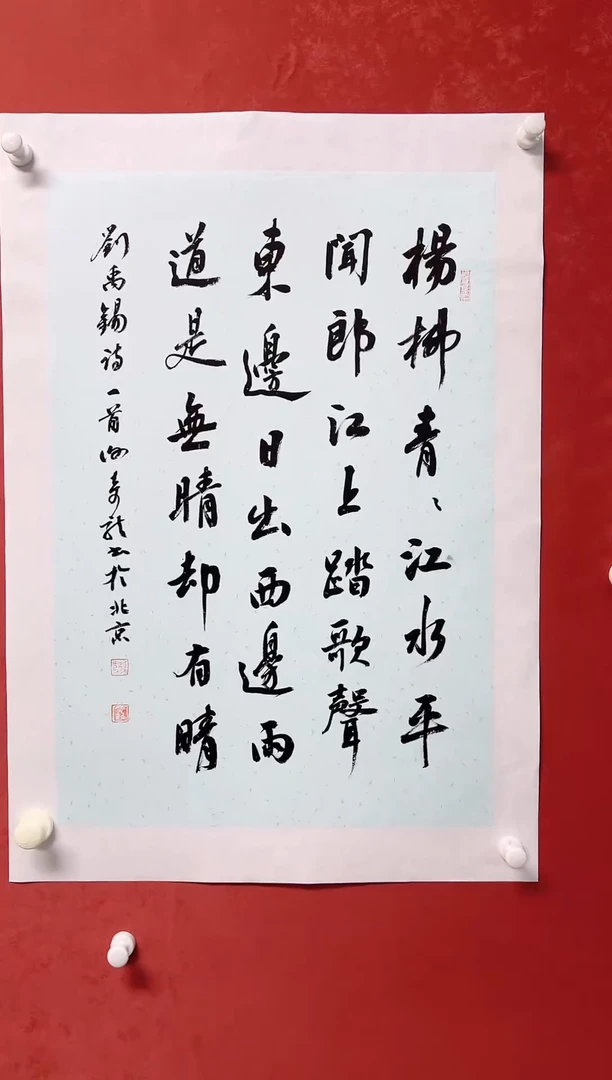 楊柳青〻江水平
聞郎江上踏歌聲
東邊日出西邊雨
道是無晴却有晴
劉禹錫詩一首
書於北京